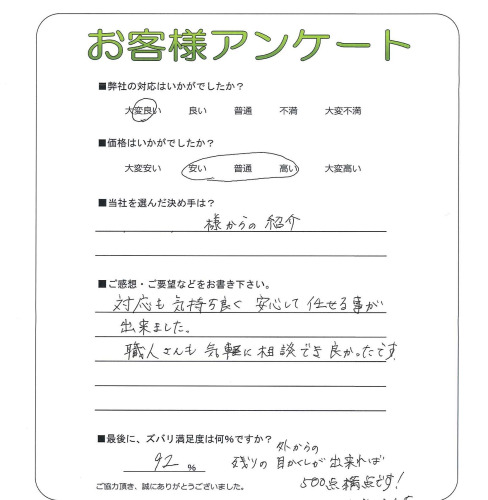 お客様アンケート
■弊社の対応はいかがでしたか？
大変良い 良い 普通 不満 大変不満
■価格はいかがでしたか？
大変安い 安い 普通 高い 大変高い
■当社を選んだ決め手は？
様からの 紹介
■ご感想・ご要望などをお書き下さい。
対応も 気持ち良く 安心して 任せる事が
出来ました。
職人さんも 気軽に 相談でき 良かったです
■最後に、ズバリ満足度は何%ですか？
外からの
92 % 残りの 目かくしが 出来れば
500点 満点です!
ご協力頂き、誠にありがとうございました。